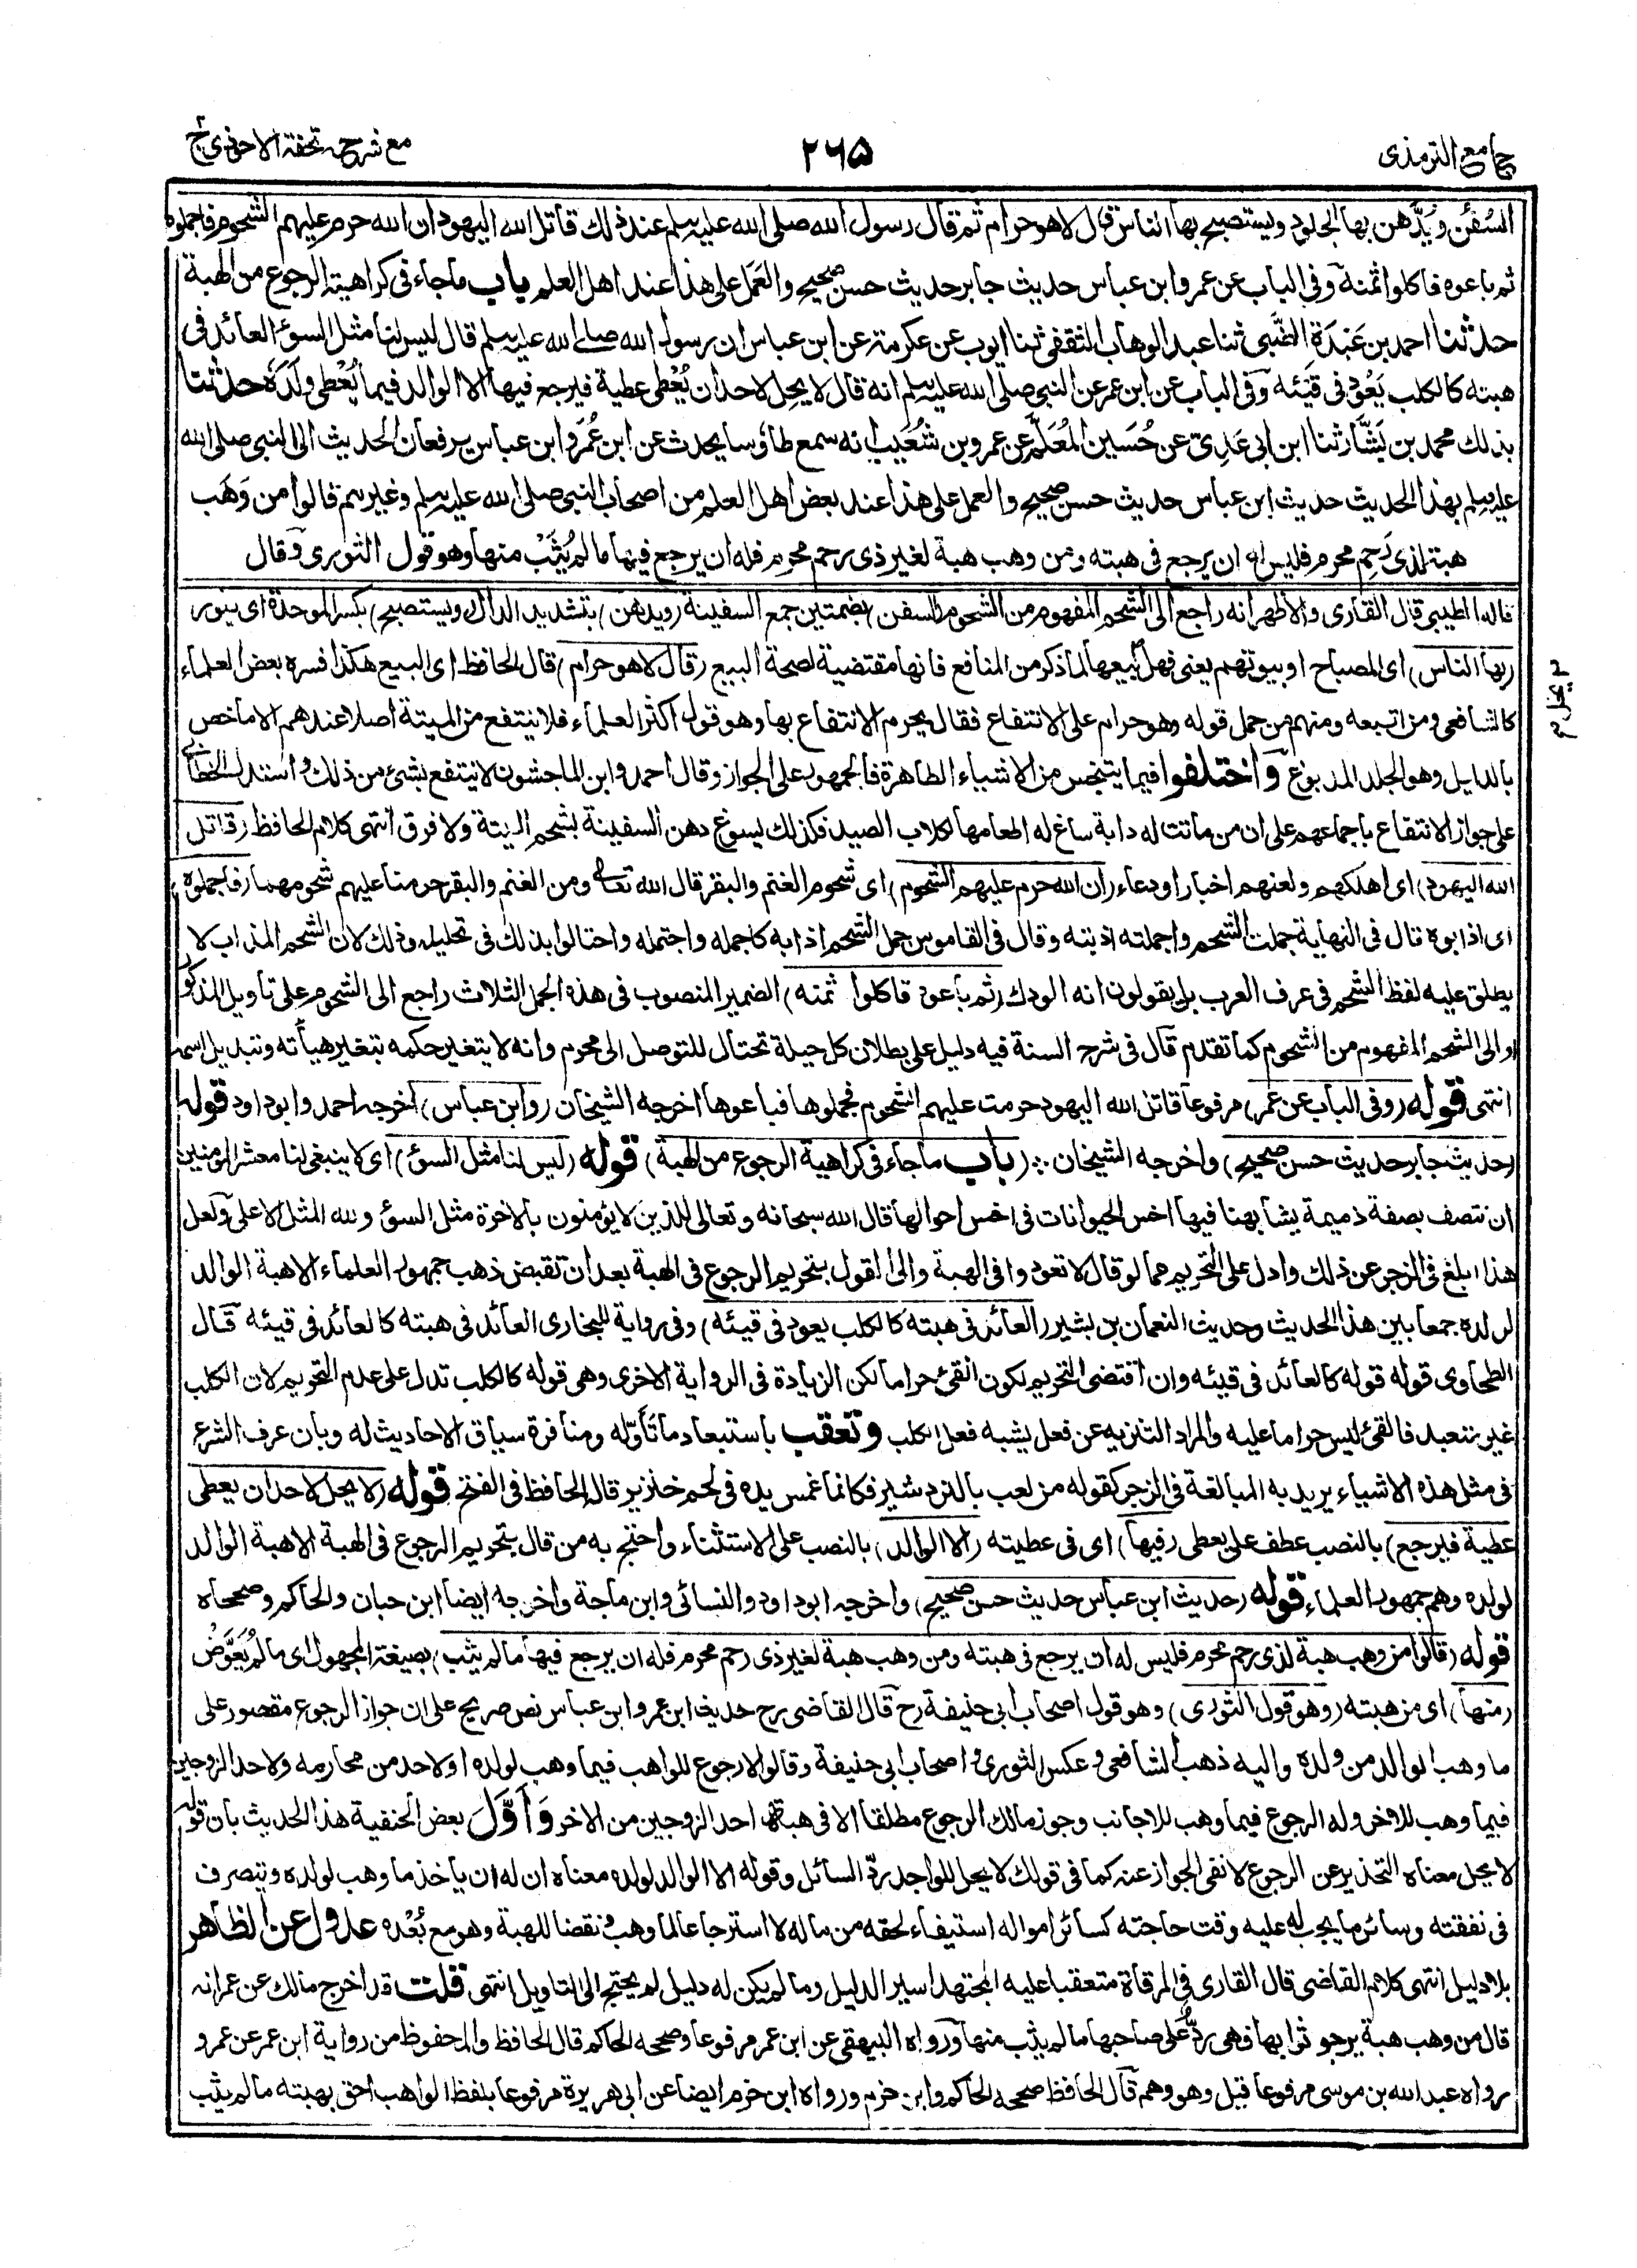 جامع الترمذی
۲۶۵
مع شرحہ تحفۃ الاحوذی ج ۲
السُفُن ويُدَّهن بها الجلود ويستصبح بها الناس قال لا هو حرام ثم قال رسول الله صلى الله عليه وسلم عند ذلك قاتل الله اليهود ان الله حرم عليهم الشحوم فاجملوه
ثم باعوه فاكلوا ثمنه وفى الباب عن عمر وابن عباس حديث جابر حديث حسن صحيح والعَمَل على هذا عند اهل العلم باب ماجاء فى كراهية الرجوع من الهبة
حدثنا احمد بن عَبْدَةَ الضَّبِّى ثنا عبد الوهاب الثقفى ثنا ايوب عن عكرمة عن ابن عباس ان رسول الله صلى الله عليه وسلم قال ليس لنا مثل السوء العائد فى
هبته كالكلب يَعُوْد فى قَيْئه وفى الباب عن ابن عمر عن النبى صلى الله عليه وسلم انه قال لا يحل لاحد ان يُعْطى عطية فيرجع فيها الا الوالد فيما يُعْطى ولَدَه حدثنا
بذلك محمد بن بَشَّار ثنا ابن ابى عَدِىّ عن حُسَين المُعَلِّم عن عمرو بن شُعَيب انه سمع طاؤسا يحدث عن ابن عُمَر وابن عباس يرفعان الحديث الى النبى صلى الله
عليه وسلم بهذا الحديث حديث ابن عباس حديث حسن صحيح والعمل على هذا عند بعض اهل العلم من اصحاب النبى صلى الله عليه وسلم وغيرهم قالوا من وَهَب
هبة لذى رَحِم محرم فليس له ان يرجع فى هبته ومن وهب هبة لغير ذى رحم محرم فله ان يرجع فيها مالم يُثَبْ منها وهو قول الثورى وقال
قاله الطيبى قال القارى والاظهر انه راجع الى الشحم المفهوم من الشحوم (السفن) بضمتين جمع السفينة (ويدهن) بتشديد الدال (ويستصبح) بكسر الموحدة اى ينور
(بها الناس) اى المصباح او بيوتهم يعنى فهل يحل بيعها لما ذكر من المنافع فانها مقتضية لصحة البيع (قال لا هو حرام) قال الحافظ اى البيع هكذا فسره بعض العلماء
كالشافعى ومن اتبعه ومنهم من حمل قوله وهو حرام على الانتفاع فقال يحرم الانتفاع بها وهو قول اكثر العلماء فلا ينتفع من الميتة اصلا عندهم الا ماخص
بالدليل وهو الجلد المدبوغ واختلفوا فيما يتنجس من الاشياء الطاهرة فالجمهور على الجواز وقال احمد وابن الماجشون لا ينتفع بشئ من ذلك واستدل الخطابى
على جواز الانتفاع باجماعهم على ان من ماتت له دابة ساغ له اطعامها لكلاب الصيد فكذلك يسوغ دهن السفينة بشحم الميتة ولا فرق انتهى كلام الحافظ (قاتل
الله اليهود) اى اهلكهم ولعنهم اخبار او دعاء (ان الله حرم عليهم الشحوم) اى شحوم الغنم والبقر قال الله تعالى ومن الغنم والبقر حرمنا عليهم شحومهما (فاجملوه)
اى اذابوه قال فى النهاية جملت الشحم واجملته اذبته وقال فى القاموس جمل الشحم اذابه كاجمله واجتمله واحتالوا بذلك فى تحليله وذلك لان الشحم المذاب لا
يطلق عليه لفظ الشحم فى عرف العرب بل يقولون انه الودك (ثم باعوه فاكلوا ثمنه) الضمير المنصوب فى هذه الجمل الثلاث راجع الى الشحوم على تاويل المذكور
او الى الشحم المفهوم من الشحوم كما تقدم قال فى شرح السنة فيه دليل على بطلان كل حيلة تحتال للتوصل الى محرم وانه لا يتغير حكمه بتغير هيأته وتبديل اسمه
انتهى قوله (وفى الباب عن عمر) مرفوعا قاتل الله اليهود حرمت عليهم الشحوم فجملوها فباعوها اخرجه الشيخان (وابن عباس) اخرجه احمد وابوداود قوله
(حديث جابر حديث حسن صحيح) واخرجه الشيخان ؞ (باب ماجاء فى كراهية الرجوع من الهبة) قوله (ليس لنا مثل السوء) اى لا ينبغى لنا معشر المؤمنين
ان نتصف بصفة ذميمة يشابهنا فيها اخس الحيوانات فى اخس احوالها قال الله سبحانه وتعالى للذين لا يؤمنون بالاخرة مثل السوء ولله المثل الاعلى ولعل
هذا ابلغ فى الزجر عن ذلك وادل على التحريم مما لو قال لا تعودوا فى الهبة والى القول بتحريم الرجوع فى الهبة بعد ان تقبض ذهب جمهور العلماء الا هبة الوالد
لولده جمعا بين هذا الحديث وحديث النعمان بن بشير (العائد فى هبته كالكلب يعود فى قيئه) وفى رواية للبخارى العائد فى هبته كالعائد فى قيئه قال
الطحاوى قوله قوله كالعائد فى قيئه وان اقتضى التحريم لكون القئ حراما لكن الزيادة فى الرواية الاخرى وهى قوله كالكلب تدل على عدم التحريم لان الكلب
غير متعبد فالقئ ليس حراما عليه والمراد التنزيه عن فعل يشبه فعل الكلب وتعقب باستبعاد ما تأوّله ومنافرة سياق الاحاديث له وبان عرف الشرع
فى مثل هذه الاشياء يريد به المبالغة فى الزجر كقوله من لعب بالنردشير فكانما غمس يده فى لحم خنزير قاله الحافظ فى الفتح قوله (لا يحل لاحد ان يعطى
عطية فيرجع) بالنصب عطف على يعطى (فيها) اى فى عطيته (الا الوالد) بالنصب على الاستثناء واحتج به من قال بتحريم الرجوع فى الهبة الا هبة الوالد
لولده وهم جمهور العلماء قوله (حديث ابن عباس حديث حسن صحيح) واخرجه ابوداود والنسائى وابن ماجة واخرجه ايضا ابن حبان والحاكم وصححاه
قوله (قالوا من وهب هبة لذى رحم محرم فليس له ان يرجع فى هبته ومن وهب هبة لغير ذى رحم محرم فله ان يرجع فيها مالم يثب) بصيغة المجهول اى مالم يُعَوَّضْ
(منها) اى من هبته (وهو قول الثورى) وهو قول اصحاب ابى حنيفة رح قال القاضى رح حديث ابن عمر وابن عباس نص صريح على ان جواز الرجوع مقصور على
ما وهب الوالد من ولده واليه ذهب الشافعى وعكس الثورى واصحاب ابى حنيفة وقالوا لا رجوع للواهب فيما وهب لولده او لاحد من محارمه ولاحد الزوجين
فيما وهب للاخر وله الرجوع فيما وهب للاجانب وجوز مالك الرجوع مطلقا الا فى هبة احد الزوجين من الاخر وَاَوَّلَ بعض الحنفية هذا الحديث بان قوله
لا يحل معناه التحذير عن الرجوع لا نفى الجواز عنه كما فى قولك لا يحل للواجد ردّ السائل وقوله الا الوالد لولده معناه ان له ان ياخذ ما وهب لولده ويتصرف
فى نفقته وسائر ما يجب له عليه وقت حاجته كسائر امواله استيفاء لحقه من ماله لا استرجاعا لما وهب ونقضا للهبة وهو مع بُعْده عدول عن الظاهر
بلا دليل انتهى كلام القاضى قال القارى فى المرقاة متعقبا عليه المجتهد اسير الدليل وما لم يكن له دليل لم يحتج الى التاويل انتهى قلت قد اخرج مالك عن عمر انه
قال من وهب هبة يرجو ثوابها فهى ردٌّ على صاحبها مالم يثب منها ورواه البيهقى عن ابن عمر مرفوعا وصححه الحاكم قال الحافظ والمحفوظ من رواية ابن عمر عن عمر و
رواه عبد الله بن موسى مرفوعا قيل وهو وهم قال الحافظ صححه الحاكم وابن حزم ورواه ابن حزم ايضا عن ابى هريرة مرفوعا بلفظ الواهب احق بهبته مالم يثب